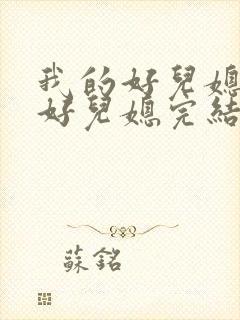 我的好兒媳
好兒媳完結
蘇銘